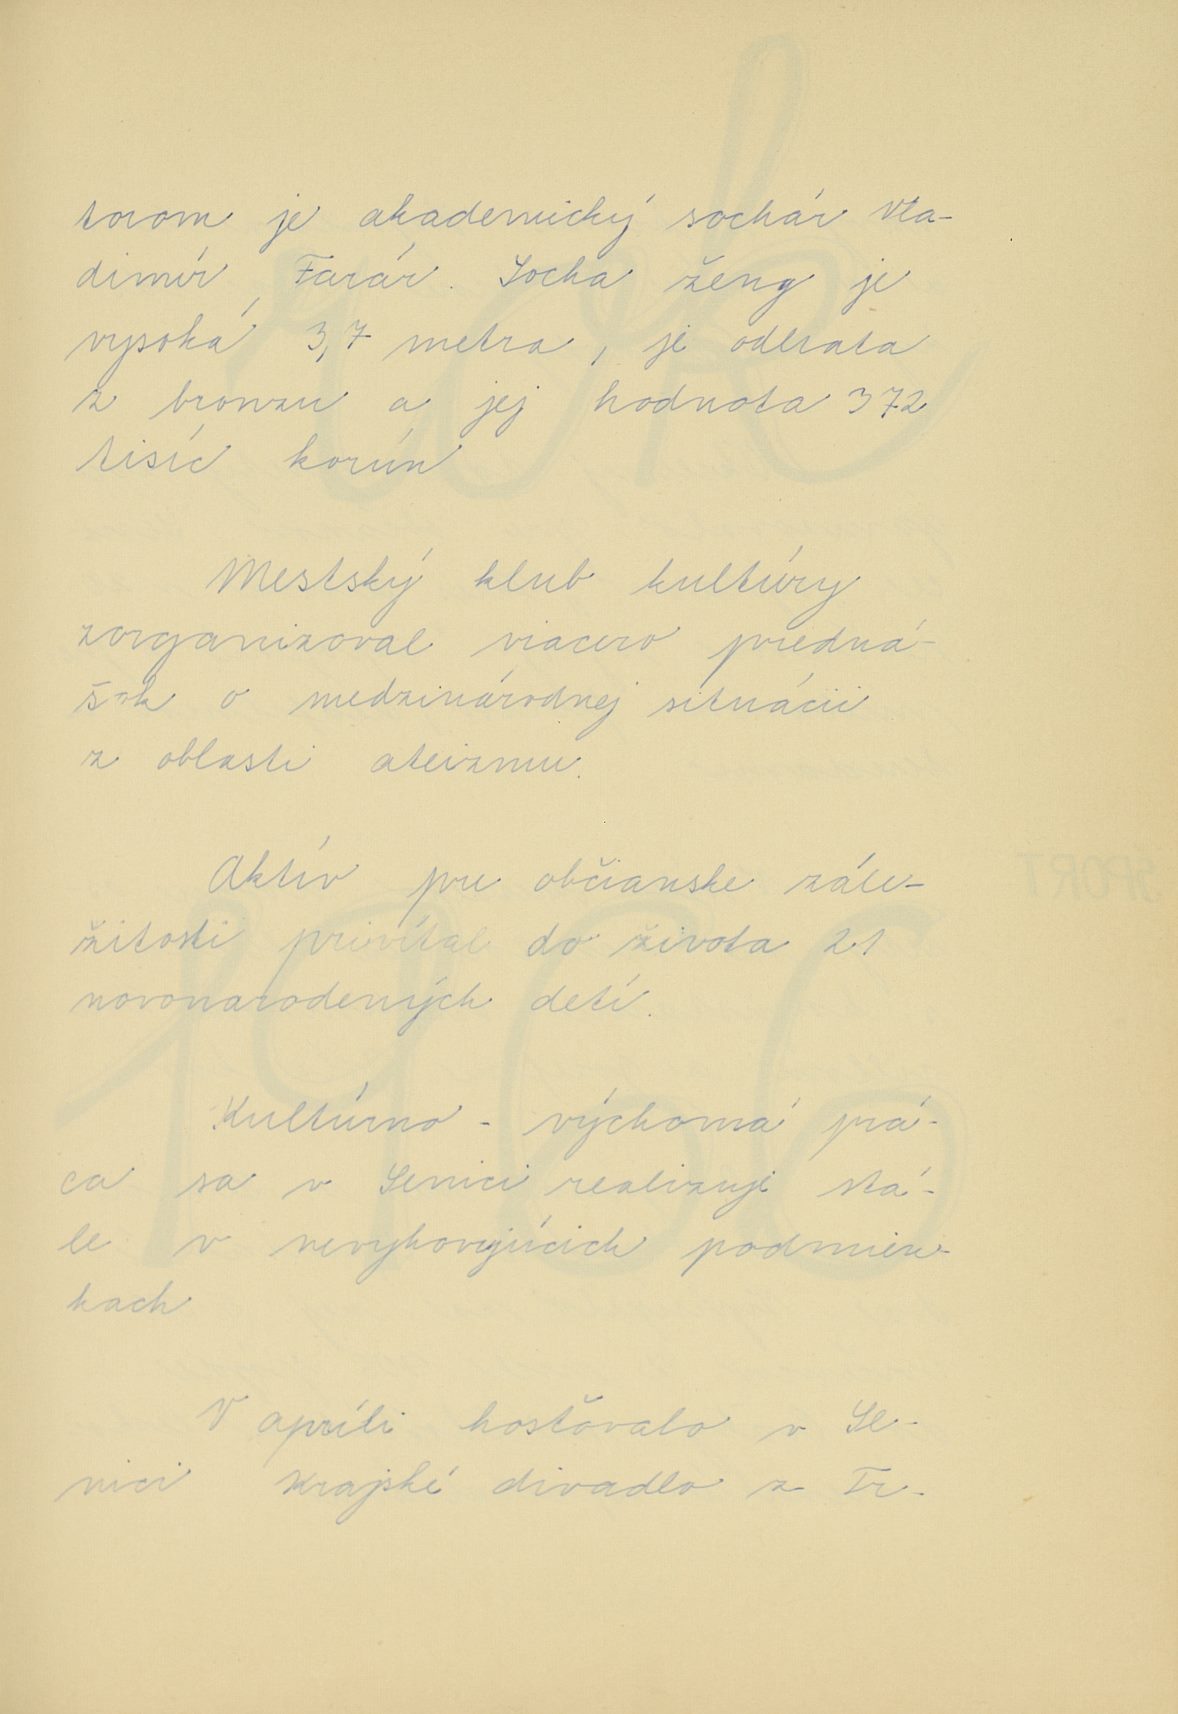 torom je akademický sochár Vla-
dimír Farár. Socha ženy je
vysoká 3,7 metra, je odliata
z bronzu a jej hodnota 372
tisíc korún
Mestský klub kultúry
zorganizoval viacero predná-
šok o medzinárodnej situácii
z oblasti ateizmu.
Aktív pre občianske zále-
žitosti privítal do života 21
novonarodených detí.
Kultúrno - výchovná prá-
ca sa v Senici realizuje stá-
le v nevyhovujúcich podmien-
kach
V apríli hosťovalo v Se-
nici Krajské divadlo z Tr-